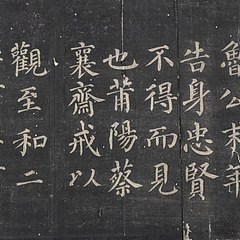 魯公末筆
告身忠賢
不得而見
也莆陽蔡
襄齋戒以
觀至和二